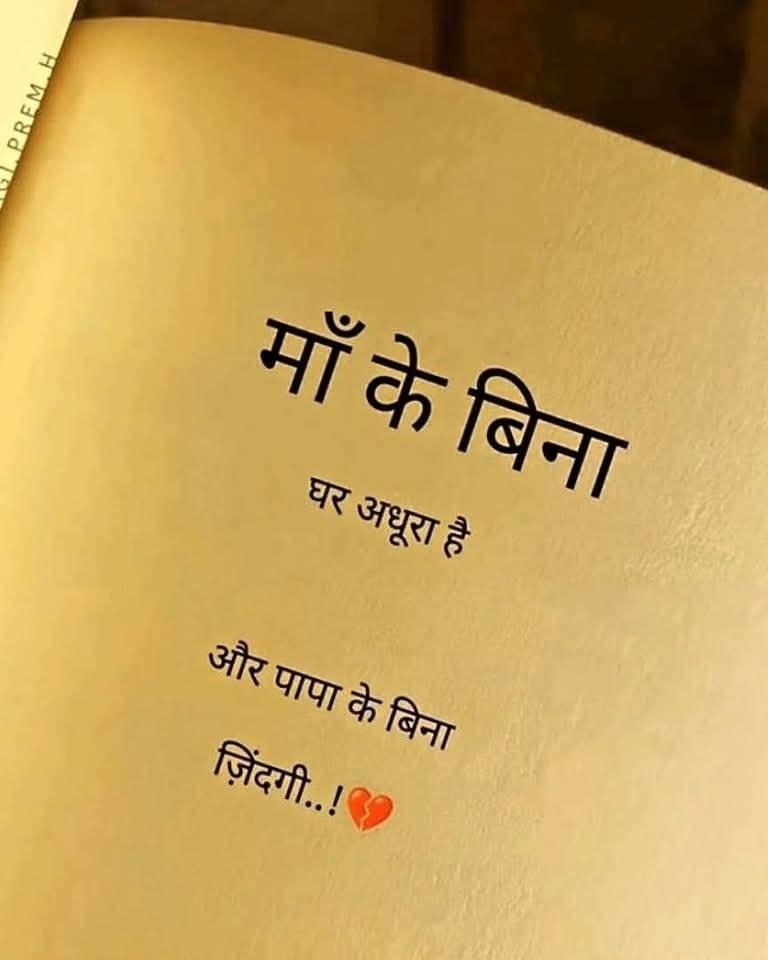 GI.PREM.H
माँ के बिना
घर अधूरा है
और पापा के बिना
ज़िंदगी..!💔